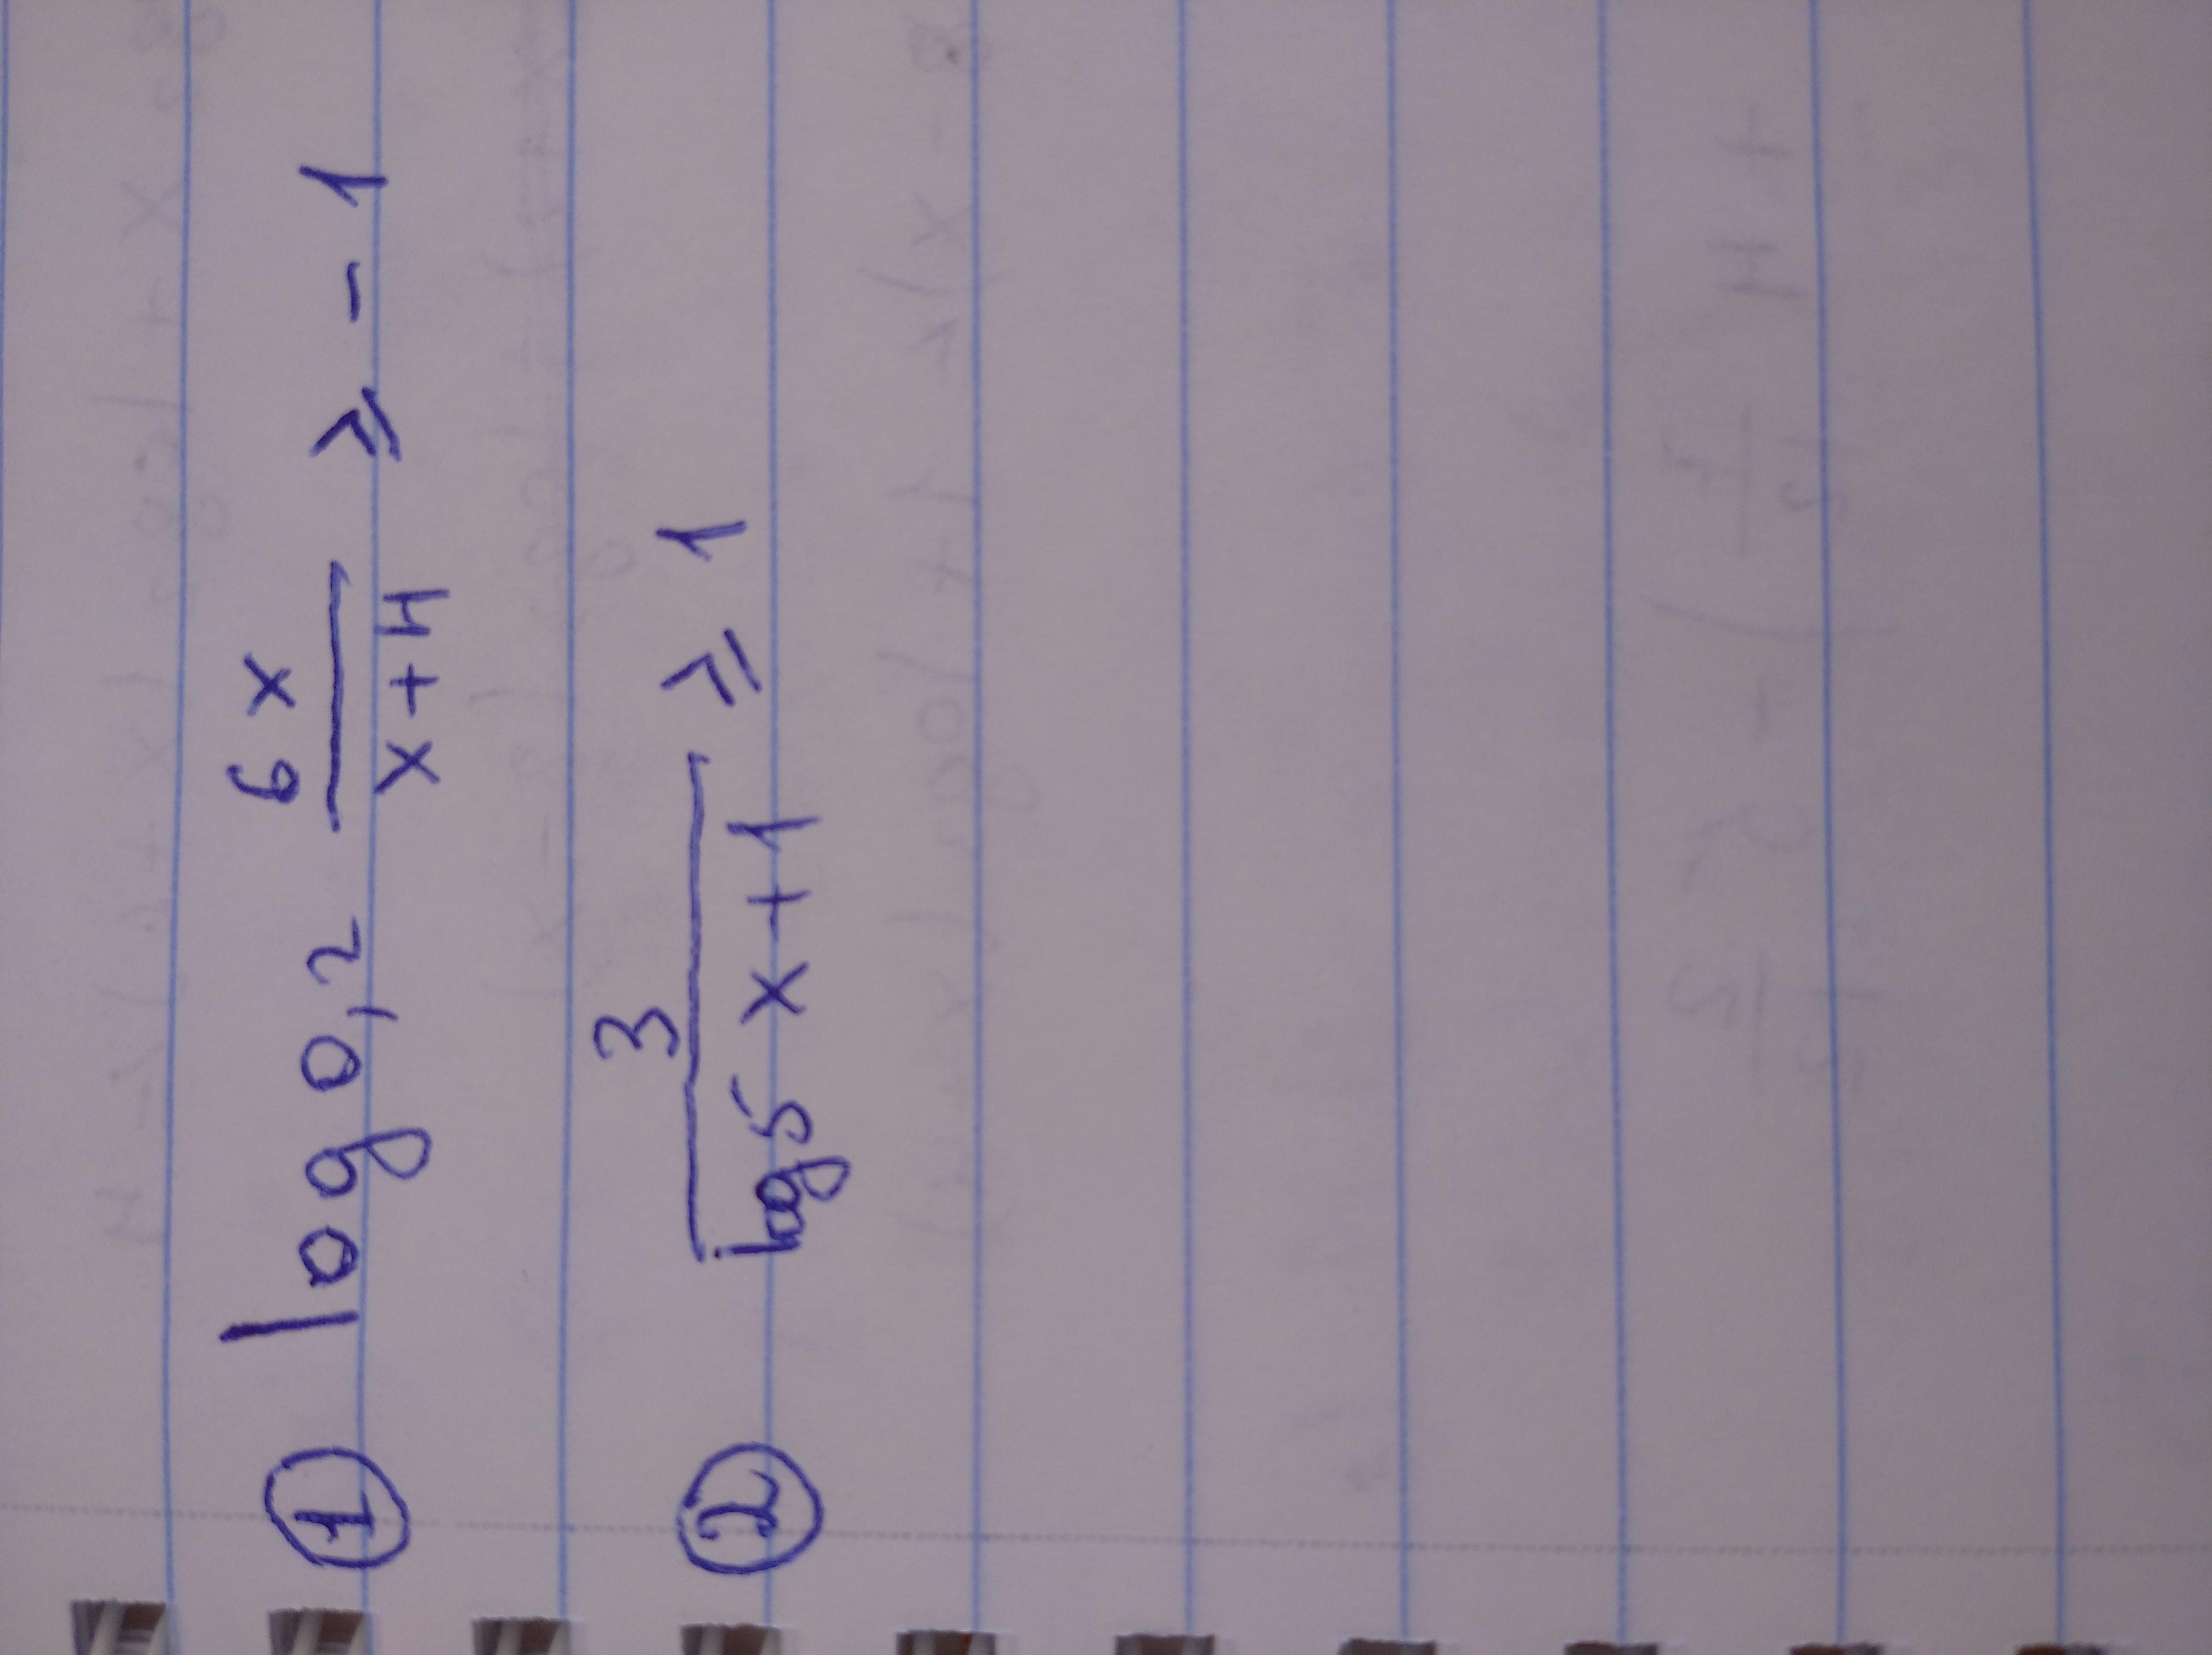 ① log 0,2 6x/(x+4) ⩾ -1
② 3/(log5 x+1) ⩾ 1